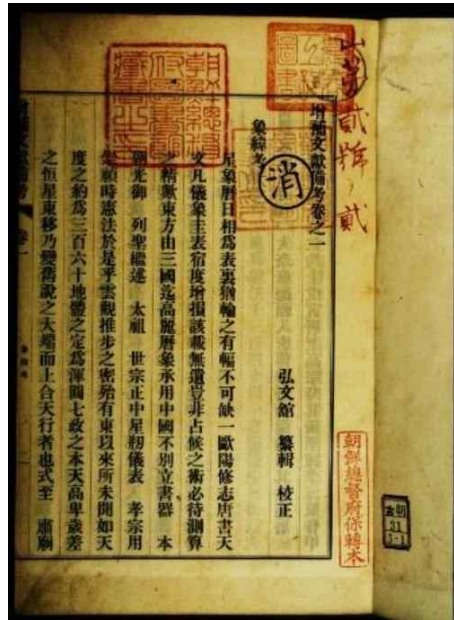 貳號ノ貳
朝鮮總督府保轉本
朝
古
31
1-1
增補文獻備考卷之一
消
弘文館 纂輯 校正
象緯考
星象曆日相爲表裏猶輪之有輻不可缺一歐陽修志唐書天
文凡儀象圭表宿度增損該載無遺豈非占候之術必待測算
之精歟東方由三國迄高麗曆象承用中國不別立書器 本
朝光御 列聖繼述 太祖 世宗正中星刱儀表 孝宗用
順時憲法於是乎雲觀推步之密殆有東以來所未聞如天
度之約爲三百六十地體之定爲渾圓七政之本天高卑歲差
之恒星東移乃變舊說之大端而上合天行者也式至 肅廟
朝鮮總督府圖書館藏書之印